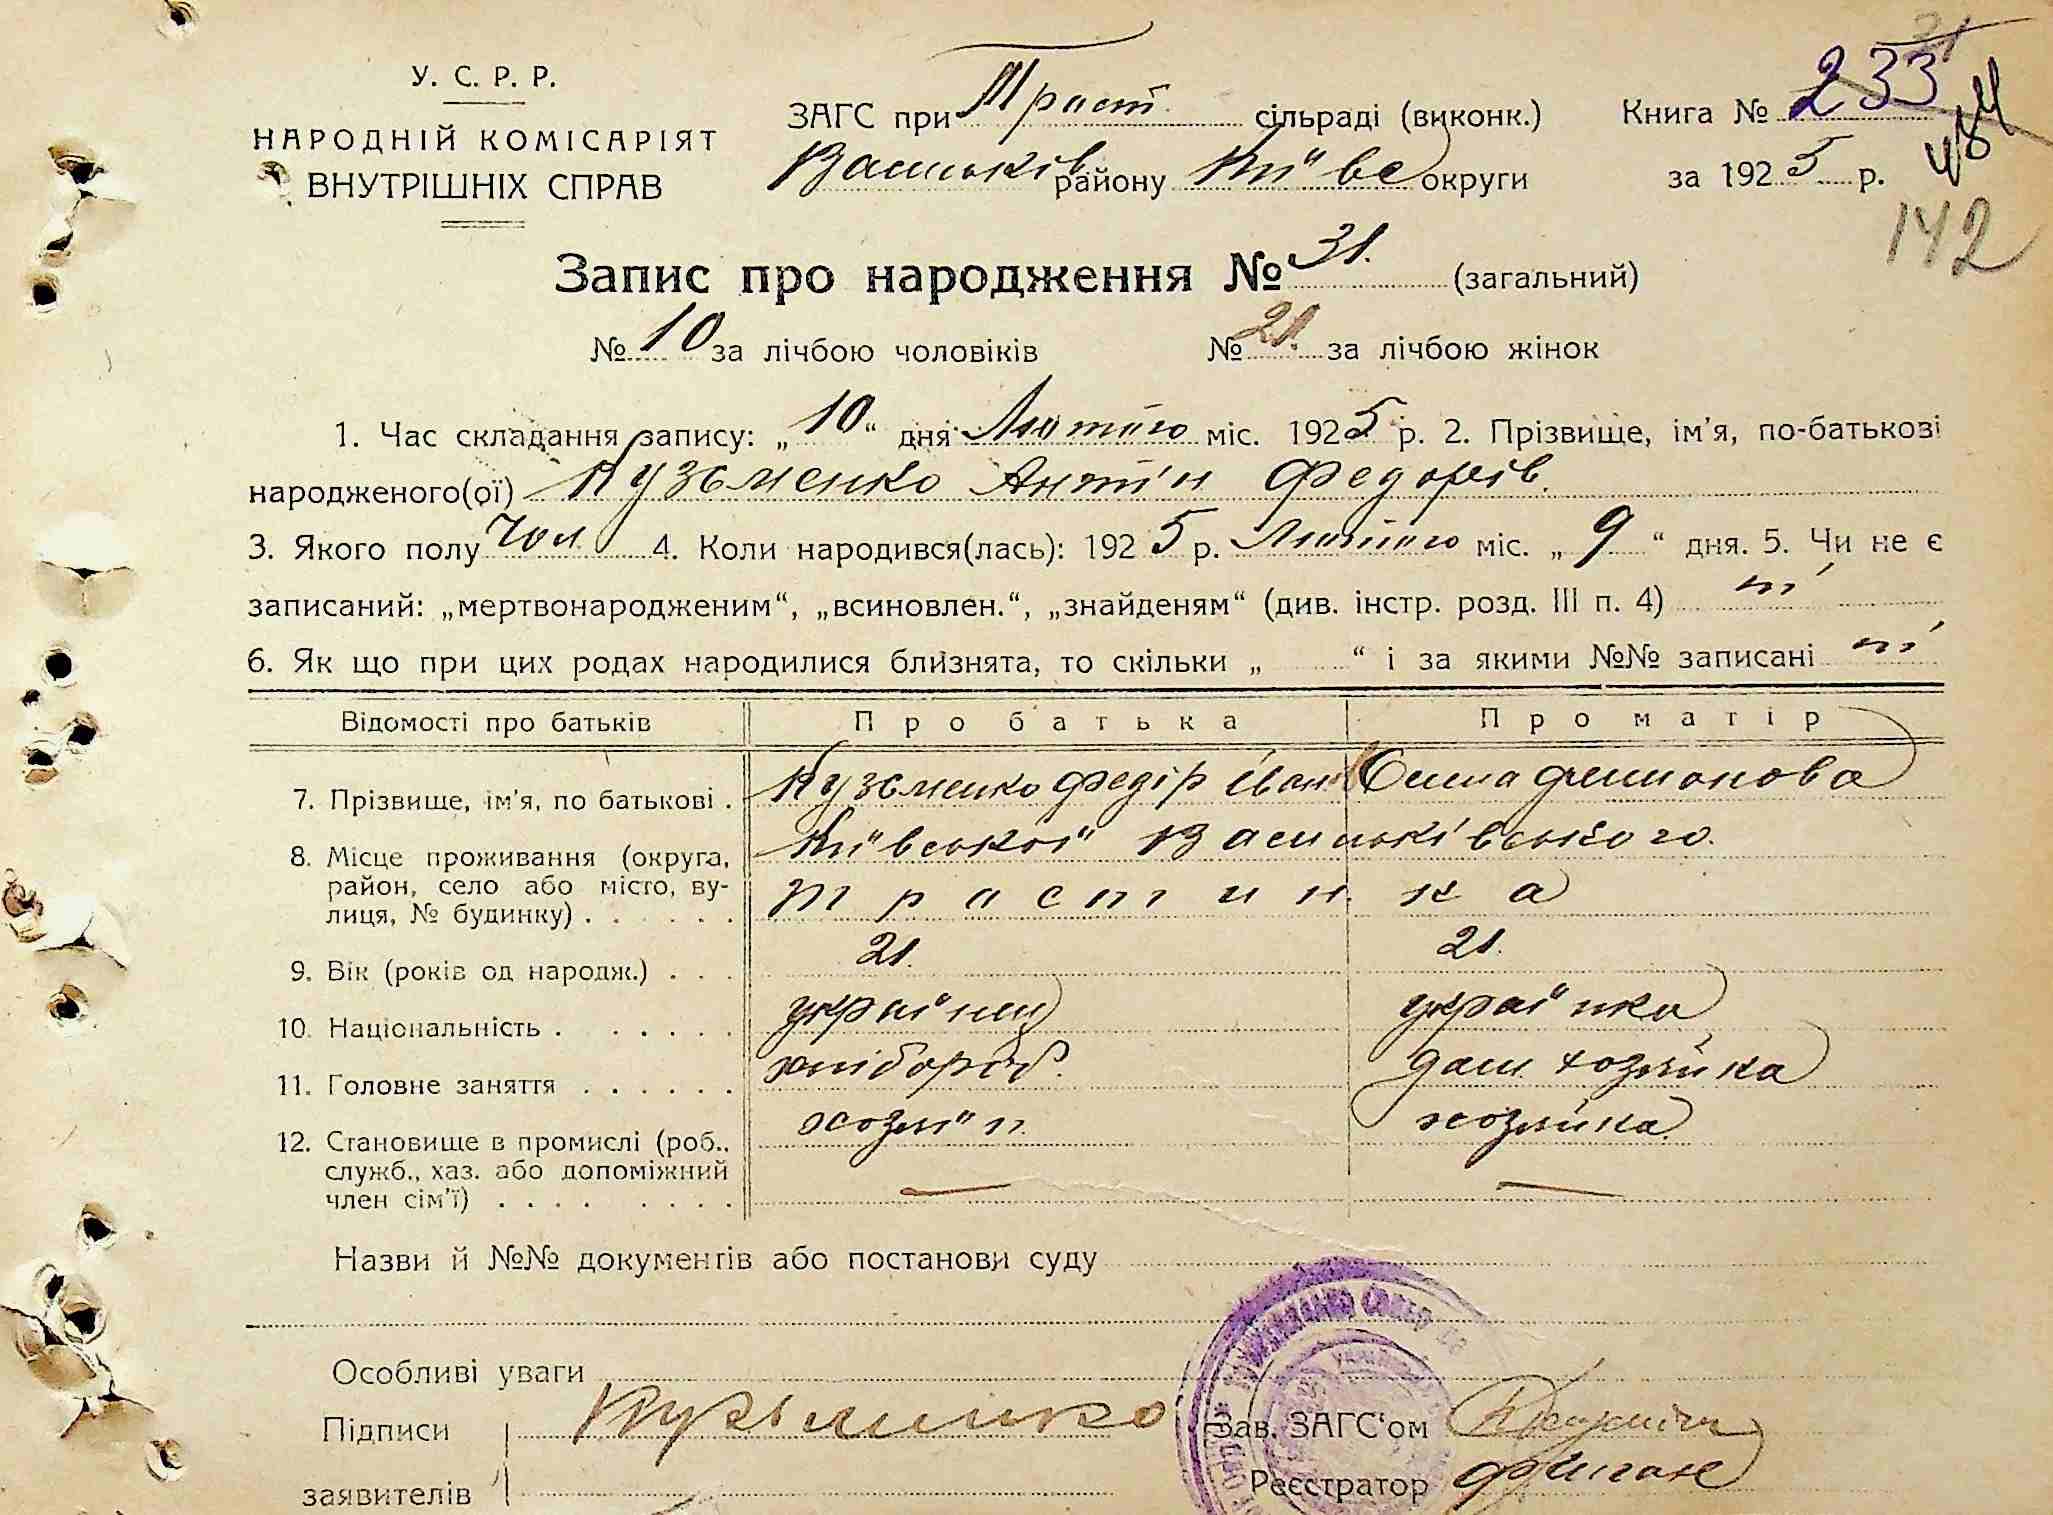 У. С. Р. Р.
НАРОДНІЙ КОМІСАРІЯТ
ВНУТРІШНІХ СПРАВ
ЗАГС при Траст. сільраді (виконк.)
Васильків району Київс округи
Книга № 233
за 1925 р.
142
Запис про народження № 31. (загальний)
№ 10 за лічбою чоловіків № 21. за лічбою жінок
1. Час складання запису: „10“ дня Лютого міс. 1925 р. 2. Прізвище, ім'я, по-батькові
народженого(ої) Кузьменко Антін Федорів.
3. Якого полу Чол. 4. Коли народився(лась): 1925 р. Лютого міс. „9“ дня. 5. Чи не є
записаний: „мертвонародженим“, „всиновлен.“, „знайденям“ (див. інстр. розд. III п. 4) ні
6. Як що при цих родах народилися близнята, то скільки „ “ і за якими №№ записані ні
Відомості про батьків Про батька Про матір
7. Прізвище, ім'я, по батькові . Кузьменко Федір Іван
8. Місце проживання (округа, Київської Васильківського.
район, село або місто, ву-
лиця, № будинку) . . . . . . Трастинка
9. Вік (років од народж.) . . . 21. 21.
10. Національність . . . . . . . українец українка
11. Головне заняття . . . . . . хлібороб. дом. хозяйка
12. Становище в промислі (роб., хозяїн хозяйка
служб., хаз. або допоміжний
член сім'ї) . . . . . . . . — —
Назви й №№ документів або постанови суду
Особливі уваги
Підписи Кузьменко Зав. ЗАГС'ом
заявителів Реєстратор